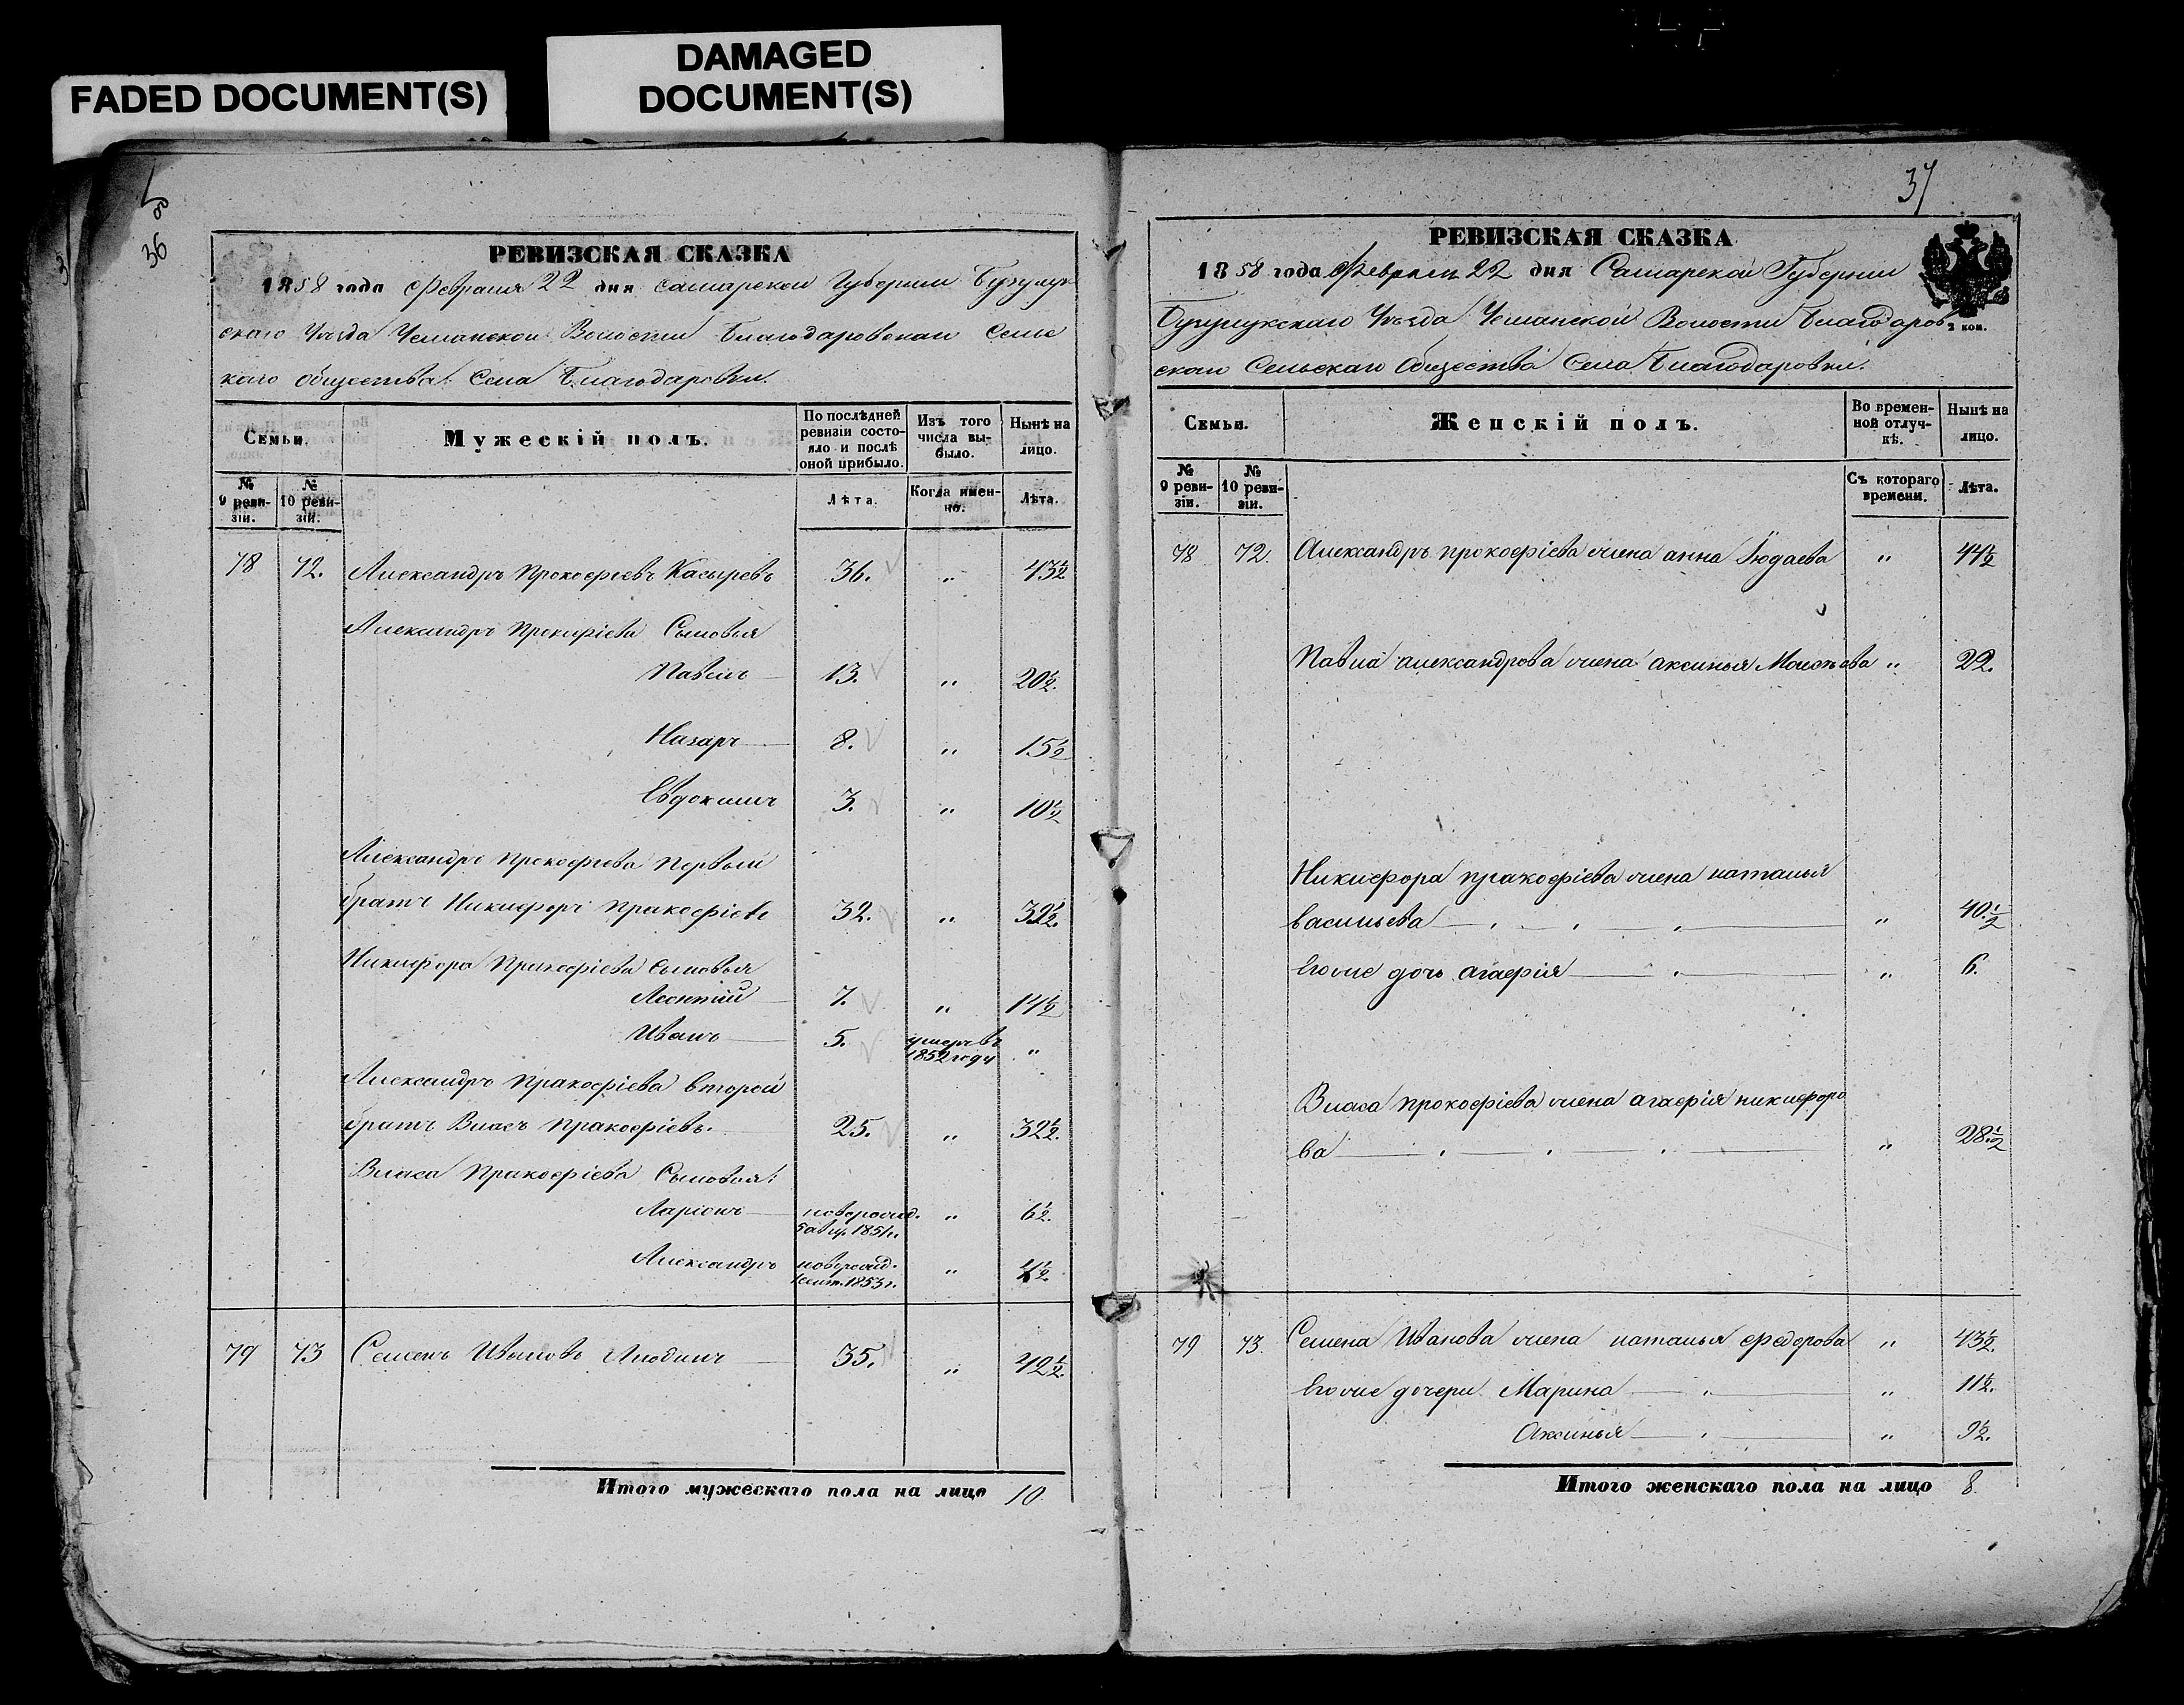 FADED DOCUMENT(S)
DAMAGED
DOCUMENT(S)
36
РЕВИЗСКАЯ СКАЗКА
1858 года Февраля 22 дня Самарской Губернии Бузулук-
скаго Уѣзда Волости Благодаровскаго Сельс
каго общества Села Благодаровки.
Семьи.
Мужескій полъ.
По послѣдней ревизіи состояло и послѣ оной прибыло.
Изъ того числа выбыло.
Нынѣ на лицо.
№ 9 ревизіи.
№ 10 ревизіи.
Лѣта.
Когда именно.
Лѣта.
78 72. Александръ Прокофіевъ Касыревъ 36. „ 43½
Александръ Прокофіева Сыновья
Павелъ 13. „ 20½.
Назаръ 8. „ 15½
Евдокимъ 3. „ 10½
Александръ Прокофіева Первый
братъ Никифоръ Пракофіевъ 32. „ 39½.
Никифора Пракофіева Сыновья
Леонтій 7. „ 14½
Иванъ 5. умеръ въ 1852 году „
Александръ Пракофіева второй
братъ Власъ Пракофіевъ. 25. „ 32½.
Власа Пракофіева Сыновья:
Ларіонъ новорожд. 1851 г. „ 6½.
Александръ новорожд. 1 сент. 1853 г. „ 4½.
79 73 Семенъ Ивановъ 35. „ 42½.
Итого мужескаго пола на лицо 10.
37
РЕВИЗСКАЯ СКАЗКА
1858 года Февраля 22 дня Самарской Губернии
Бузулукскаго Уѣзда Волости Благодаров
2 коп.
скаго Сельскаго Общества Села Благодаровки.
Семьи.
Женскій полъ.
Во временной отлучкѣ.
Нынѣ на лицо.
№ 9 ревизіи.
№ 10 ревизіи.
Съ котораго времени.
Лѣта.
78 72. Александръ прокофіева жена анна Іюдаева „ 44½
Павла александрова жена аксинья Моисѣева „ 22.
Никифора пракофіева жена наталья
васильева „ 40.½
Егоже дочь агафія „ 6.
Власа прокофіева жена агафія никифоро
ва „ 28.½
79 73. Семена Иванова жена наталья федорова „ 43½.
Егоже дочери Марина „ 11½.
Аксинья „ 9½.
Итого женскаго пола на лицо 8.